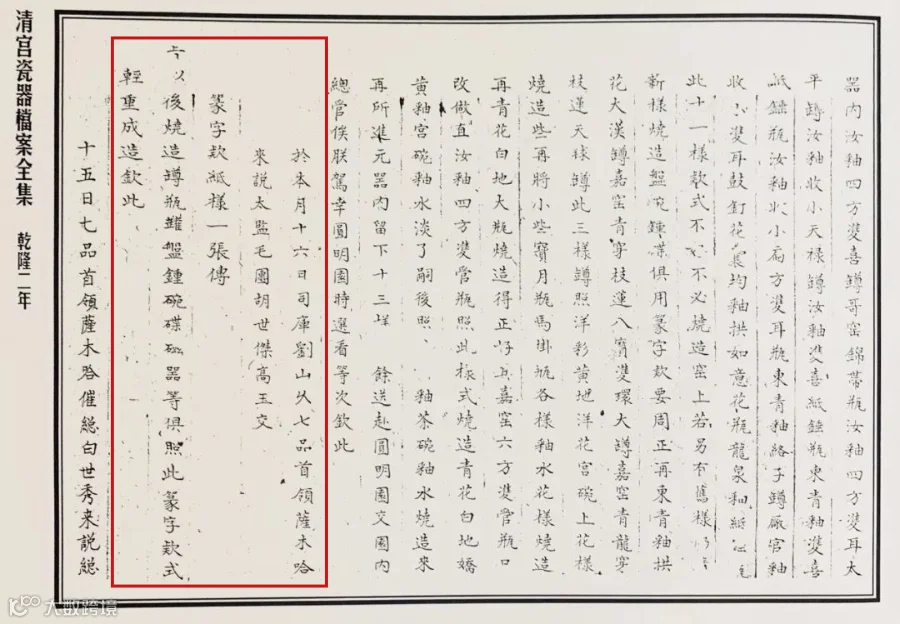 清宫瓷器檔案全集 乾隆二年
器内汝釉四方雙喜罇哥窑錦帶瓶汝釉四方雙耳太
平罇汝釉收小天禄罇汝釉雙喜紙鎚瓶東青釉雙喜
紙鎚瓶汝釉收小扁方雙耳瓶東青釉絡子罇廠官釉
收小雙耳鼓釘花囊均釉拱如意花瓶龍泉釉紙鎚瓶
此十一樣款式不 不必燒造窑上若另有舊樣
新樣燒造盤碗鍾碟俱用篆字款要周正再東青釉拱
花大漢罇嘉窑青穿枝蓮八寶雙環大罇嘉窑青龍穿
枝蓮天球罇此三樣罇照洋彩黄地洋花宫碗上花樣
燒造些再將小些寶月瓶馬掛瓶各樣釉水花樣燒造
再青花白地大瓶燒造得正 其嘉窑六方雙管瓶口
改做直汝釉四方雙管瓶照此樣式燒造青花白地嬌
黄釉宫碗釉水淡了嗣後照 釉茶碗釉水燒造來
再所進元器内留下十三样 餘送赴圓明園交園内
總管俟朕駕幸圓明園時選看等次欽此
於本月十六日司庫劉山久七品首領薩木哈
來說太監毛團胡世傑高玉交
篆字款紙樣一張傳
旨以後燒造罇瓶罐盤鍾碗碟磁器等俱照此篆字款式
輕重成造欽此
十五日七品首領薩木哈催總白世秀来說總
大数跨境